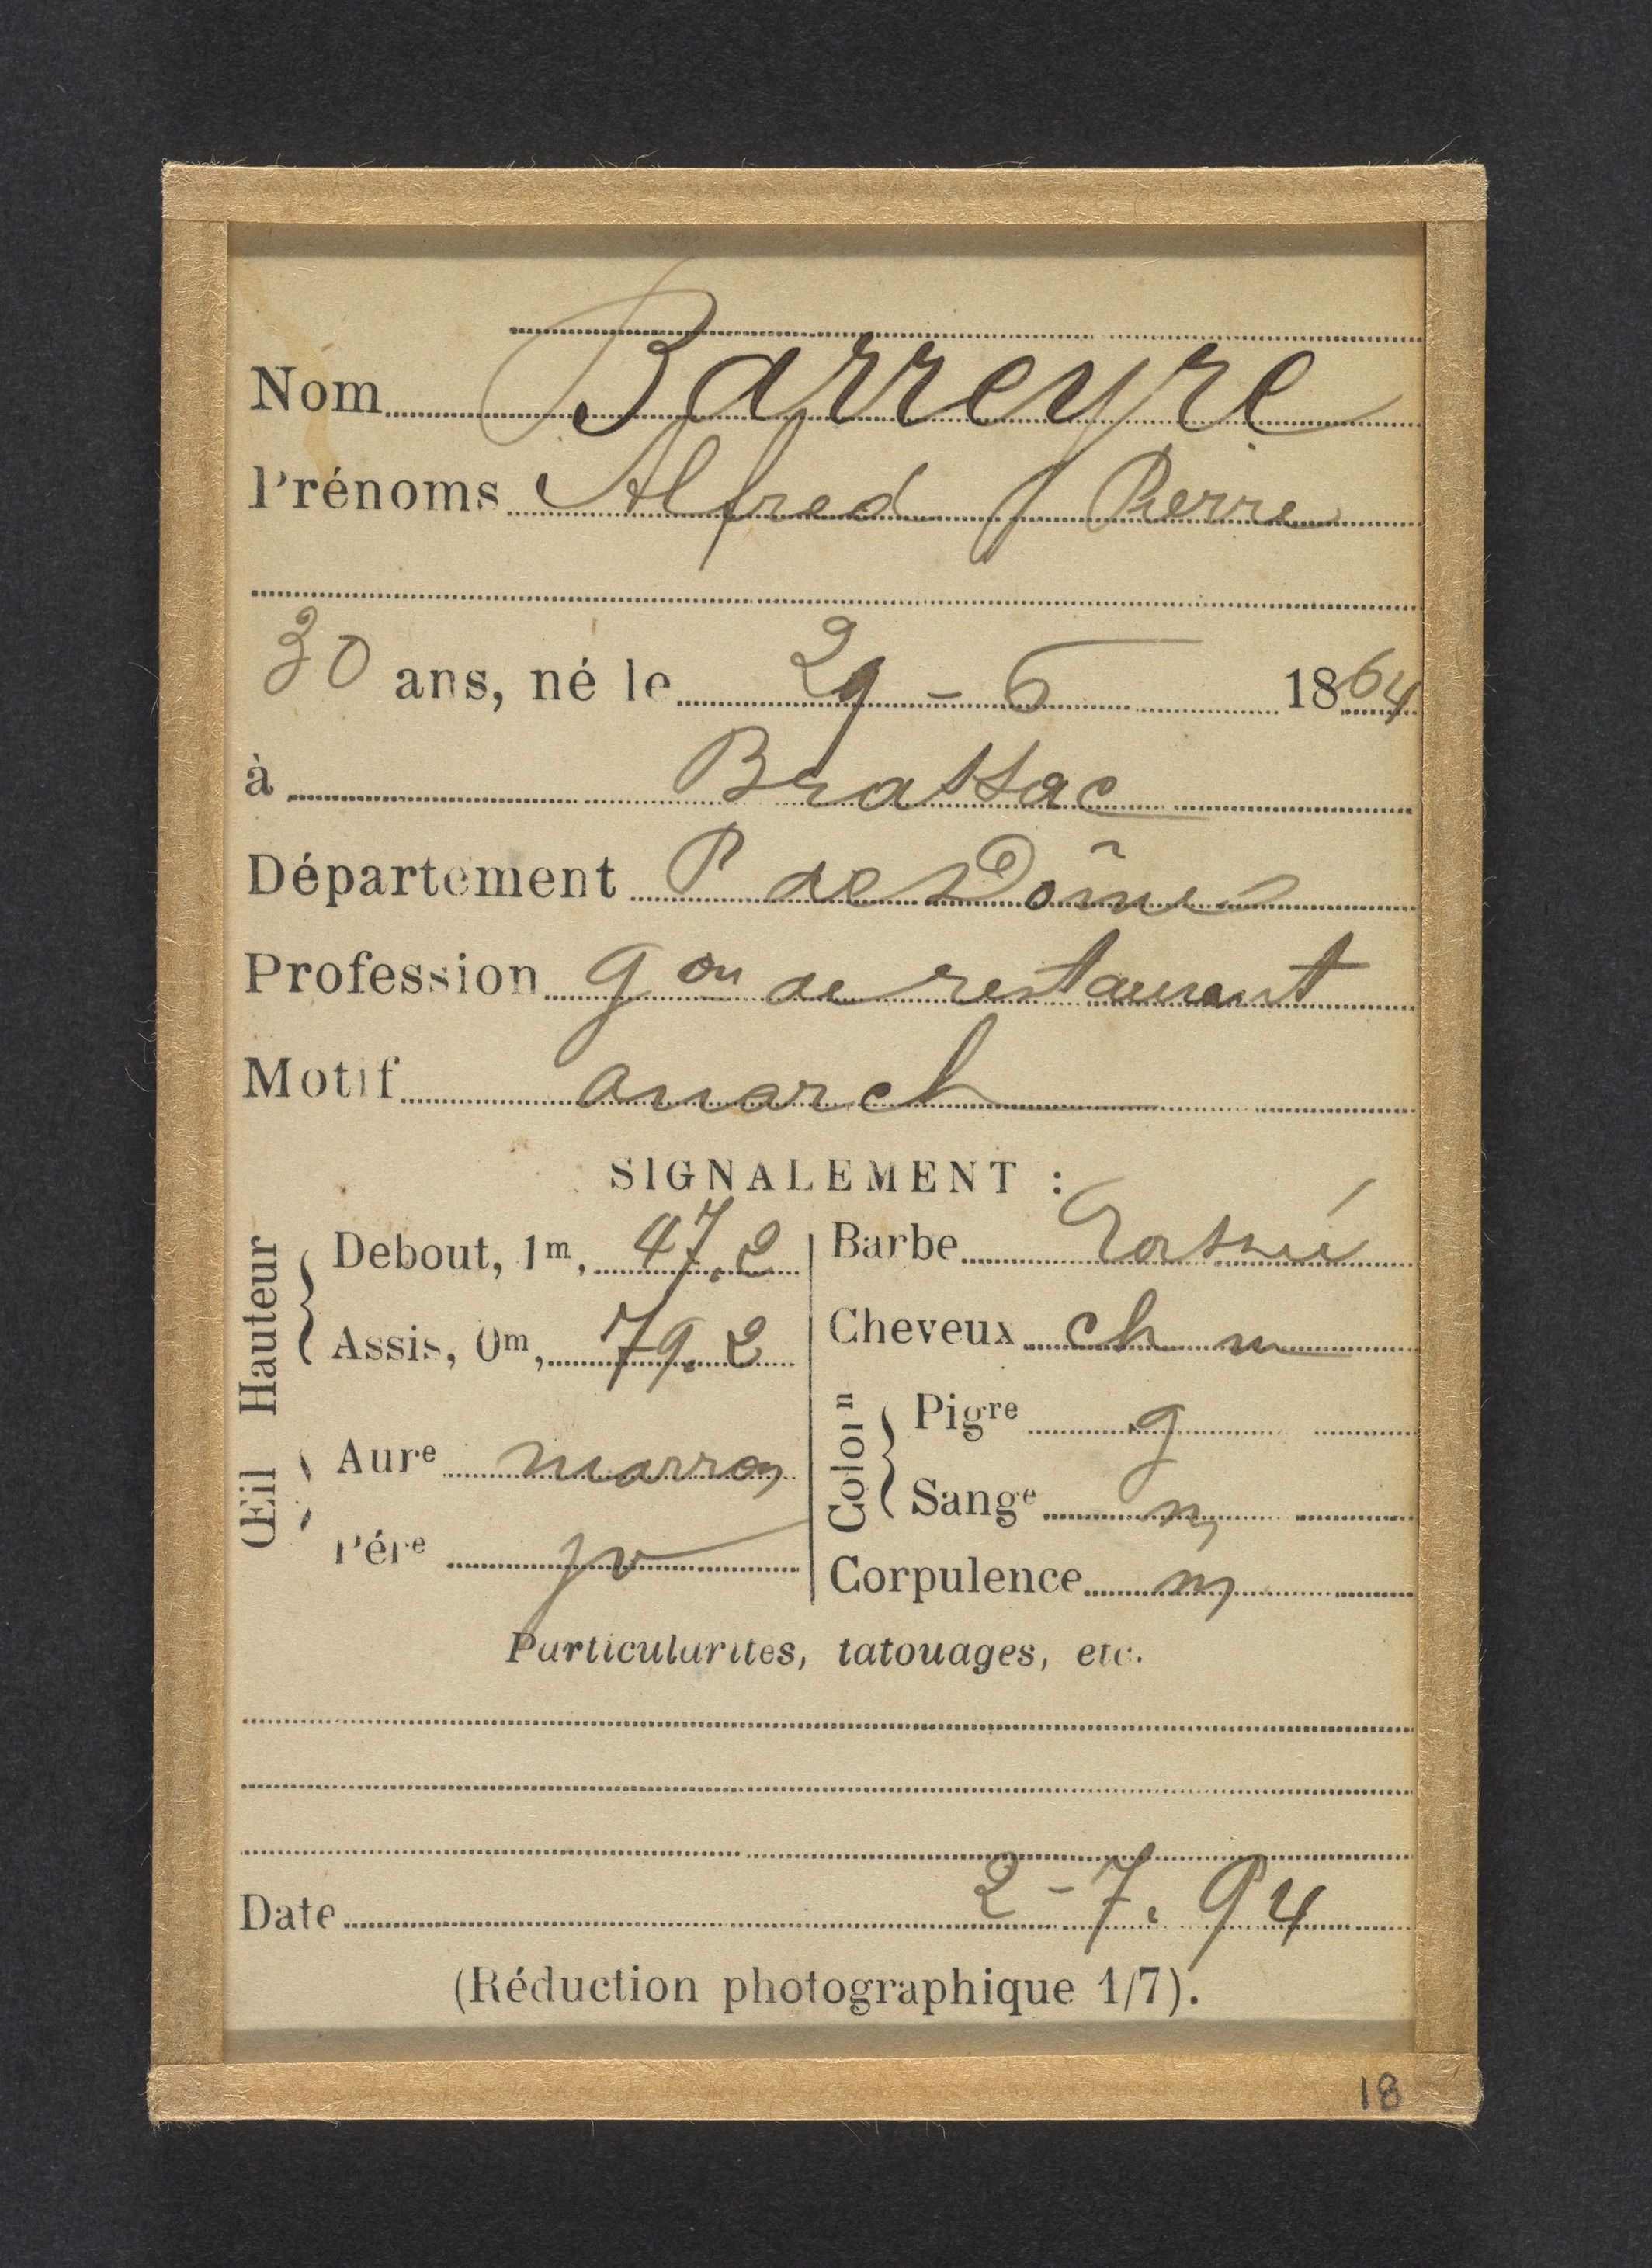 Nom Barreyre
Prénoms Alfred Pierre
30 ans, né le 29 - 6 1864
à Brassac
Département P de Dôme
Profession gon de restaurant
Motif anarch
SIGNALEMENT :
Hauteur
Debout, 1m, 47.2
Assis, 0m, 79.2
Œil
Aure marron
Pére
Barbe
Cheveux ch m
Colorn
Pigre g
Sange m
Corpulence m
Particularites, tatouages, etc.
Date 2-7. 94
(Réduction photographique 1/7).
18